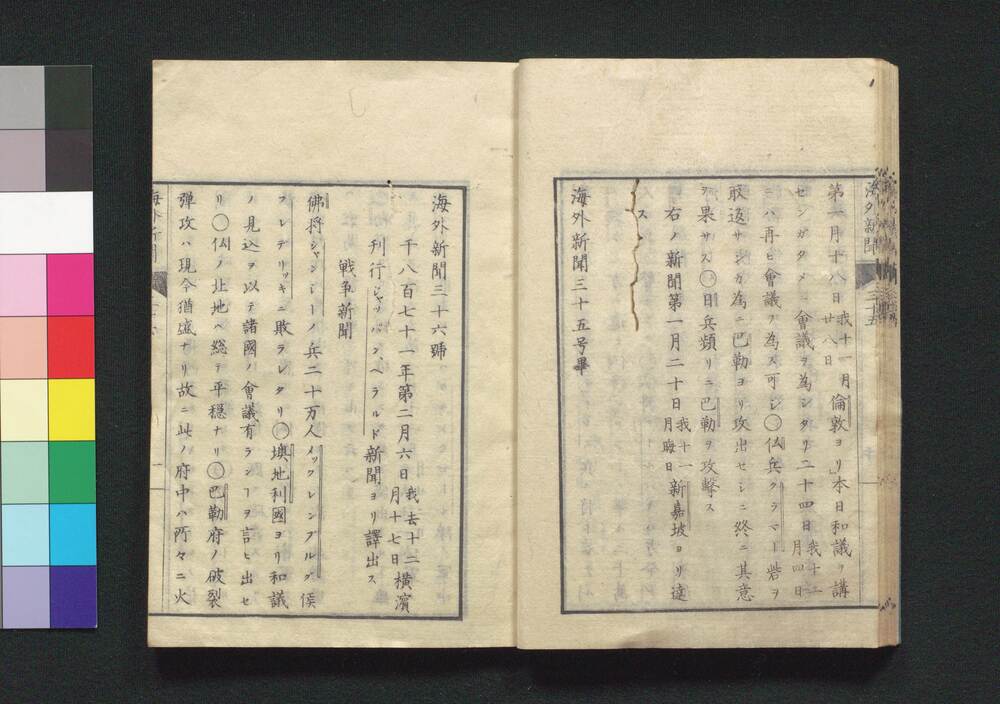 海外新聞 三十五
第一月十八日我十一月廿八日倫敦ヨリ「本日和議ヲ講
センガタメニ會議ヲ為シタリ二十四日我十二月四日
ニハ再ヒ會議ヲ為ス可シ〇仏兵クラマー砦ヲ
取返サンガ為ニ巴勒ヨリ攻出セシニ終ニ其意
ヲ果サス〇日兵頻リニ巴勒ヲ攻撃ス
右ノ新聞第一月二十日我十一月晦日新嘉坡ヨリ達
ス
海外新聞三十五号畢
海外新聞三十六號
千八百七十一年第二月六日我去十二月十七日横濱
刊行ジャッパン、ヘラルド新聞ヨリ譯出ス
戦争新聞
佛将シャンジーノ兵二十万人メックレンブルグ侯
フレデリッキニ敗ラレタリ〇墺地利國ヨリ和議
ノ見込ヲ以テ諸國ノ會議有ランヿヲ言ヒ出セ
リ〇仏ノ北地ヘ総テ平穏ナリ〇巴勒府ノ破裂
彈攻ハ現今猶盛ナリ故ニ此ノ府中ハ所々ニ火
海外新聞